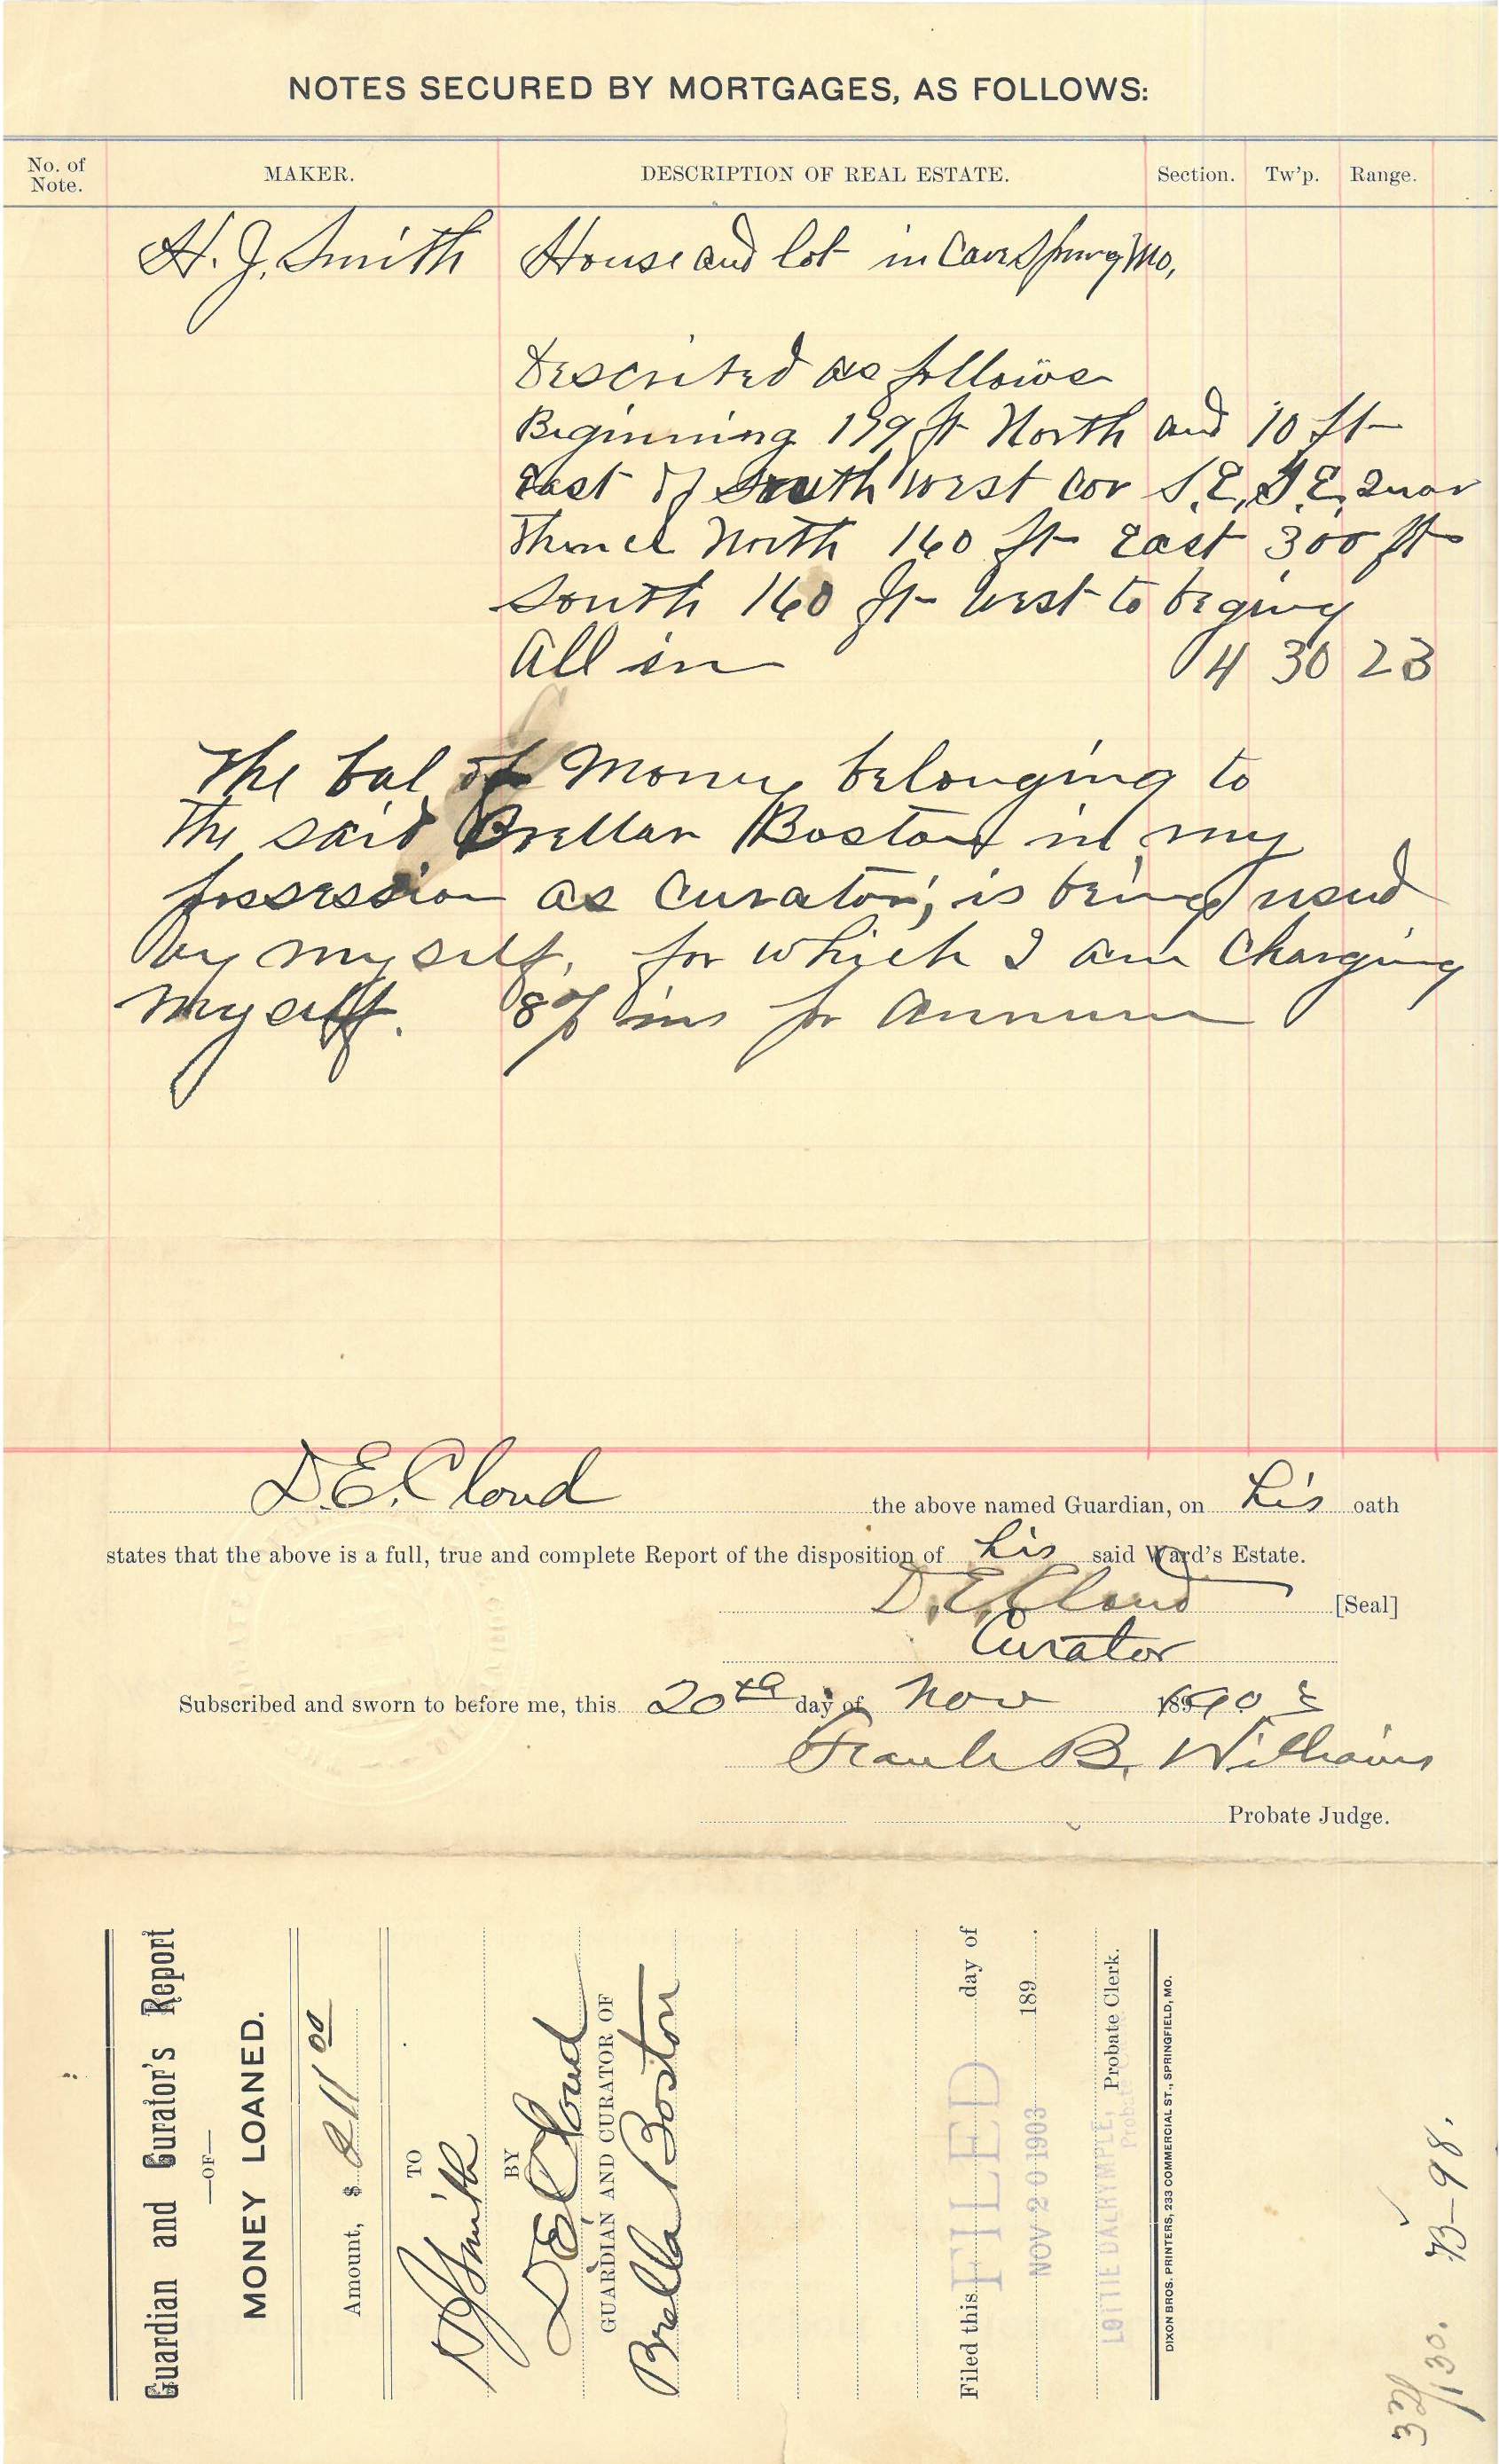 NOTES SECURED BY MORTGAGES, AS FOLLOWS:
No. of Note. MAKER. DESCRIPTION OF REAL ESTATE. Section. Tw'p. Range.
H. J. Smith House and lot in Cave Spring Mo,
Described as follows
Beginning 199 ft North and 10 ft
East of South West cor S.E, S.E, Quar
Thence North 160 ft East 300 ft
South 160 ft West to beging
All in 4 30 23
The bal of Money belonging to
The said Brellar Boston in my
possession as Curator, is being used
by my self, for which I am Charging
My self. 8% ins pr Annum
D.E. Cloud the above named Guardian, on his oath
states that the above is a full, true and complete Report of the disposition of his said Ward's Estate.
D. E. Cloud [Seal]
Curator
Subscribed and sworn to before me, this 20th day of Nov 1903
Frank B. Williams
Probate Judge.
Guardian and Curator's Report
—OF—
MONEY LOANED.
Amount, $ 211 00
TO
H J Smith
BY
D E Cloud
GUARDIAN AND CURATOR OF
Brella Boston
Filed this day of
FILED
189 .
NOV 20 1903
Probate Clerk.
LOTTIE DALRYMPLE,
DIXON BROS. PRINTERS, 233 COMMERCIAL ST., SPRINGFIELD, MO.
B—98.
130.